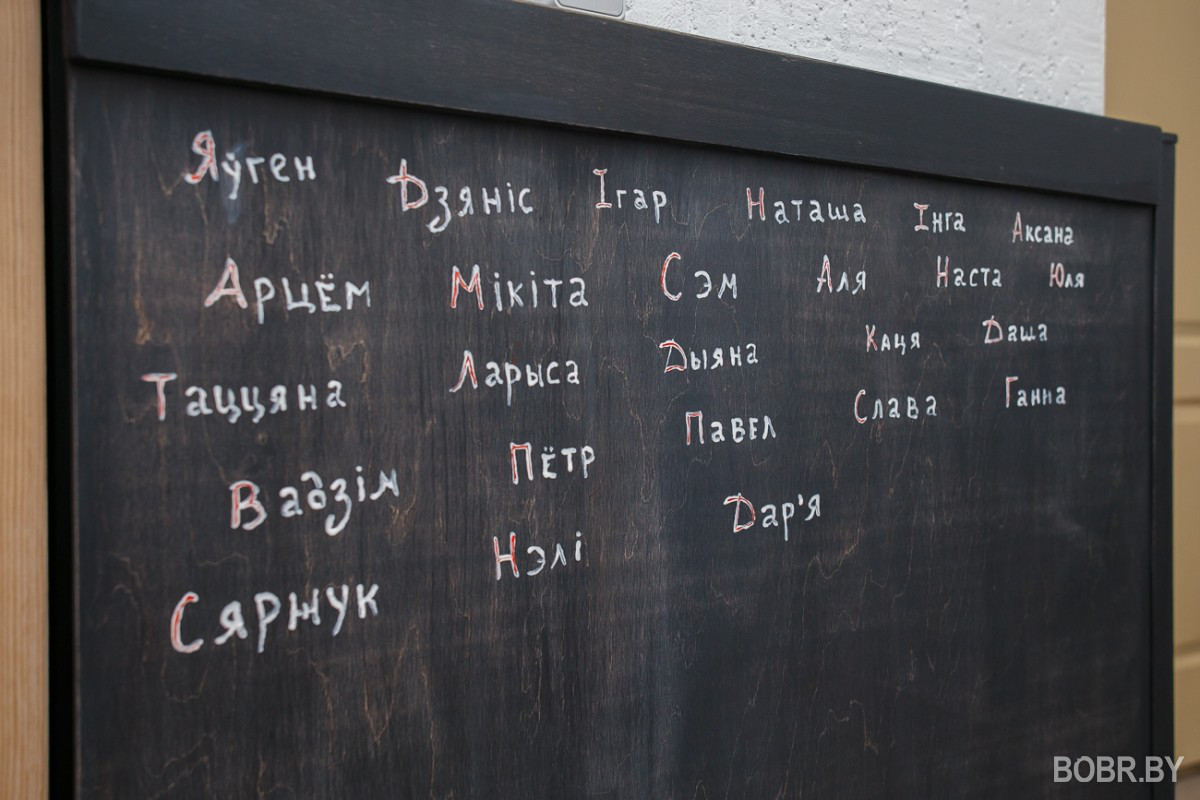 Яўген Дзяніс Ігар Наташа Інга Аксана
Арцём Мікіта Сэм Аля Наста Юля
Таццяна Ларыса Дыяна Каця Даша
Вадзім Пётр Павел Слава Ганна
Сяржук Нэлі Дар'я
BOBR.BY